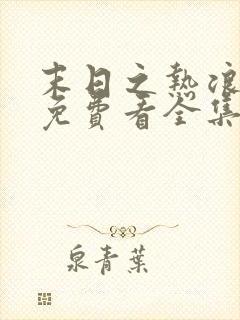 末日之熱浪
免費看全集
泉青葉